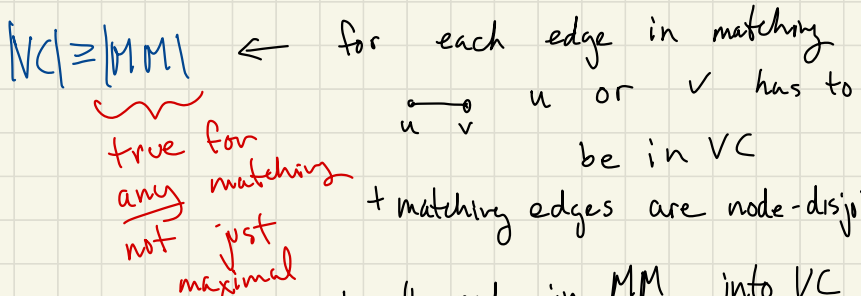 |VC| ≥ |MM| ← for each edge in matching
u v u or v has to
be in VC
+ matching edges are node-disjo
true for
any matching
not just
maximal
in MM into VC